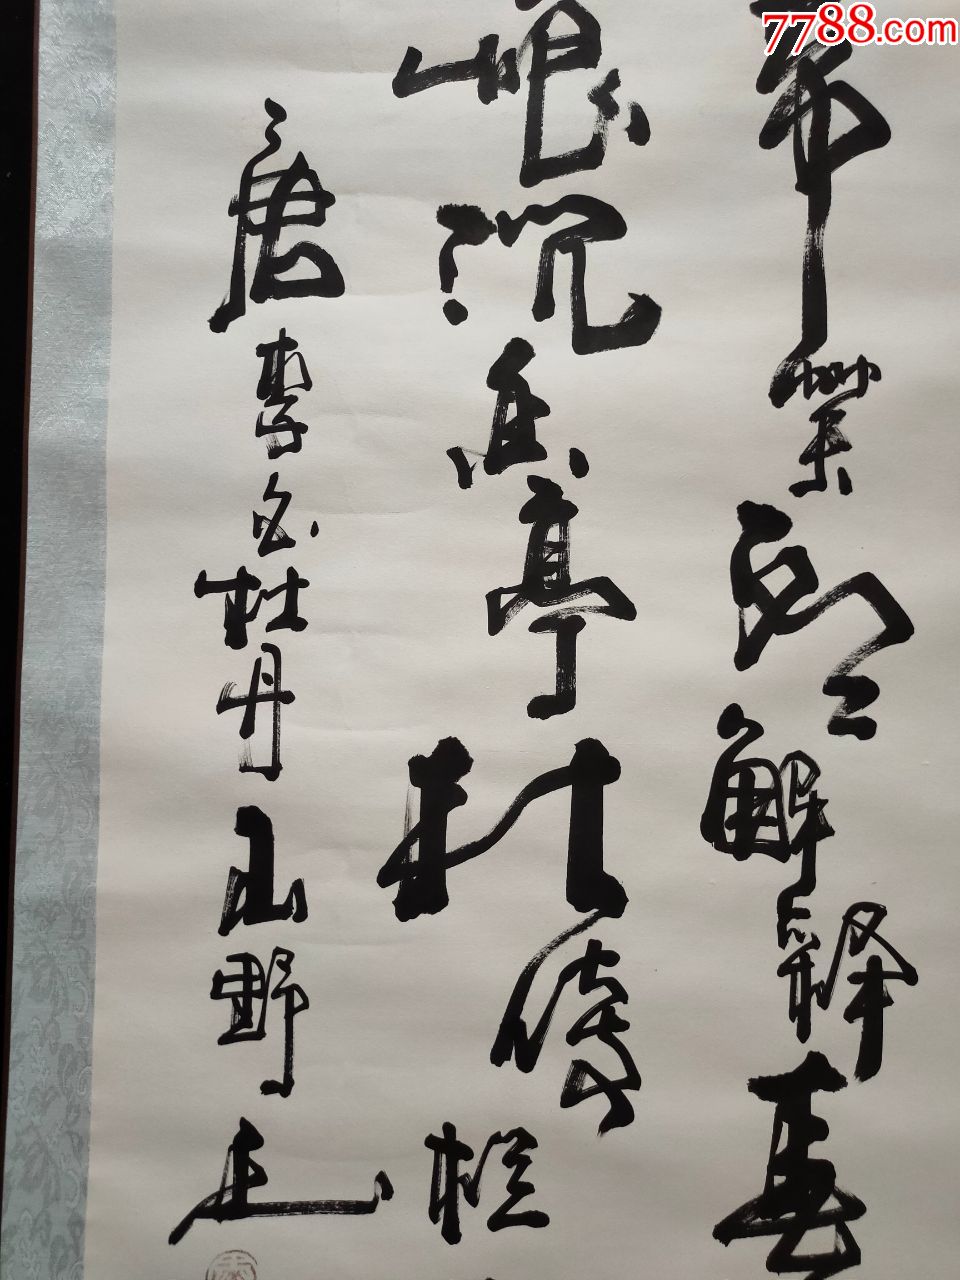 帶笑解释春
恨沉香亭北倚栏
唐李白牡丹山野
7788.com